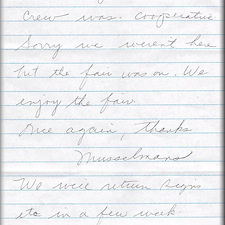 crew was. cooperative
Sorry we weren't here
but the fair was on. We
enjoy the fair.
Once again, thanks
Musselmans
We will return signs
etc in a few week